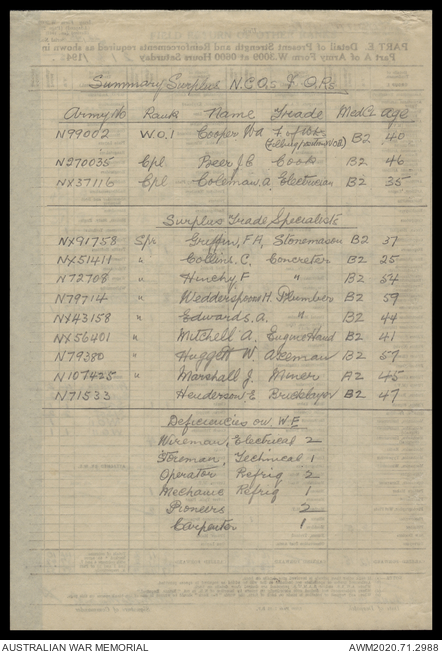 PART E. Detail of Present Strength and Reinforcements required as shown in
Part A of Army Form W.3009 at 0600 Hours Saturday
Summary Surplus N.C.O.s & O.Rs.
Army No Rank Name Trade Med Cl age
N99002 W.O.1 Cooper Wd F. of Wks B2 40
N270035 Cpl Beer J.C Cook B2 46
NX37116 Cpl Coleman, A. Electrician B2 35
Surplus Trade Specialists
NX91758 Spr Griffin, F.A, Stonemason B2 37
NX51411 " Collins. C, Concreter B2 25
N72708 " Hinchy F " B2 54
N79714 " Wedderspoon H. Plumber B2 59
NX43158 " Edwards. A. " B2 44
NX56401 " Mitchell A. Engine Hand B2 41
N79380 " Huggett W. Axeman B2 57
N107425 " Marshall J. Miner A2 45
N71533 Henderson E Bricklayer B2 47
Deficiencies on W.E
Wireman, Electrical 2
Foreman, Technical 1
Operator Refrig 2
Mechanic Refrig 1
Pioneers 2
Carpenter 1
AUSTRALIAN WAR MEMORIAL AWM2020.71.2988